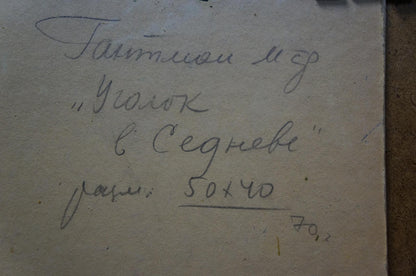 Гантман М Ф
„Уголок
в Седневе"
разм. 50х40
70г.